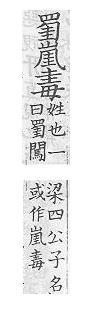 蜀毒
姓也一
曰蜀闖
梁四公子名
或作毒